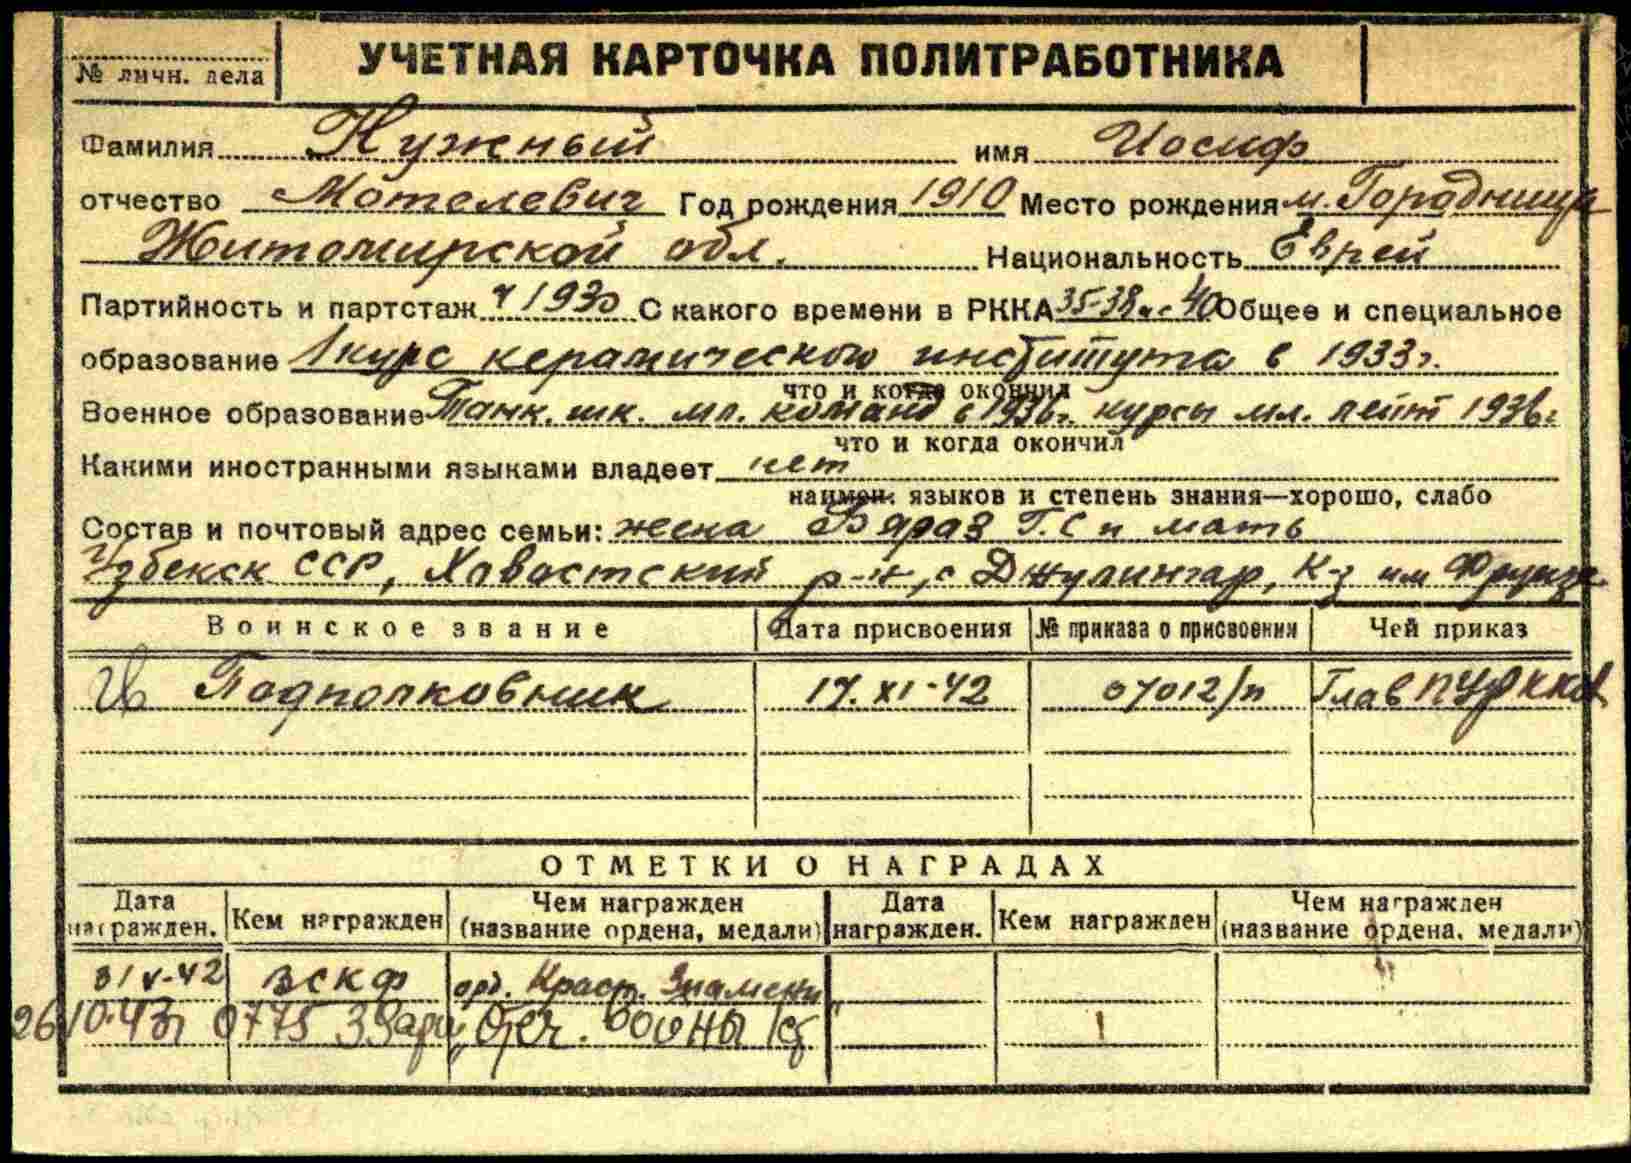 № личн. дела
УЧЕТНАЯ КАРТОЧКА ПОЛИТРАБОТНИКА
Фамилия Нужный имя Иосиф
отчество Мотелевич Год рождения 1910 Место рождения м. Городница
Житомирской обл. Национальность Еврей
Партийность и партстаж ч 1930 С какого времени в РККА 35-38 и с 40 Общее и специальное
образование 1 курс керамического института в 1933 г.
что и когда окончил
Военное образование Танк. шк. мл. команд в 1936 г. курсы мл. лейт 1936 г.
что и когда окончил
Какими иностранными языками владеет нет
наимен. языков и степень знания—хорошо, слабо
Состав и почтовый адрес семьи: жена Г. С и мать
Узбекск ССР, Хавастский р-н, с Джулингар, К-з им Фрунзе
Воинское звание Дата присвоения № приказа о присвоении Чей приказ
Гв Подполковник 17. XI-42 07012/п ГлавПУРККА
ОТМЕТКИ О НАГРАДАХ
Дата награжден. Кем награжден Чем награжден (название ордена, медали) Дата награжден. Кем награжден Чем награжден (название ордена, медали)
31 V-42 ВСКФ орд. Красн. Знамени
26/10-43г 0775 3 Зарм "Отеч. Войны" I ст